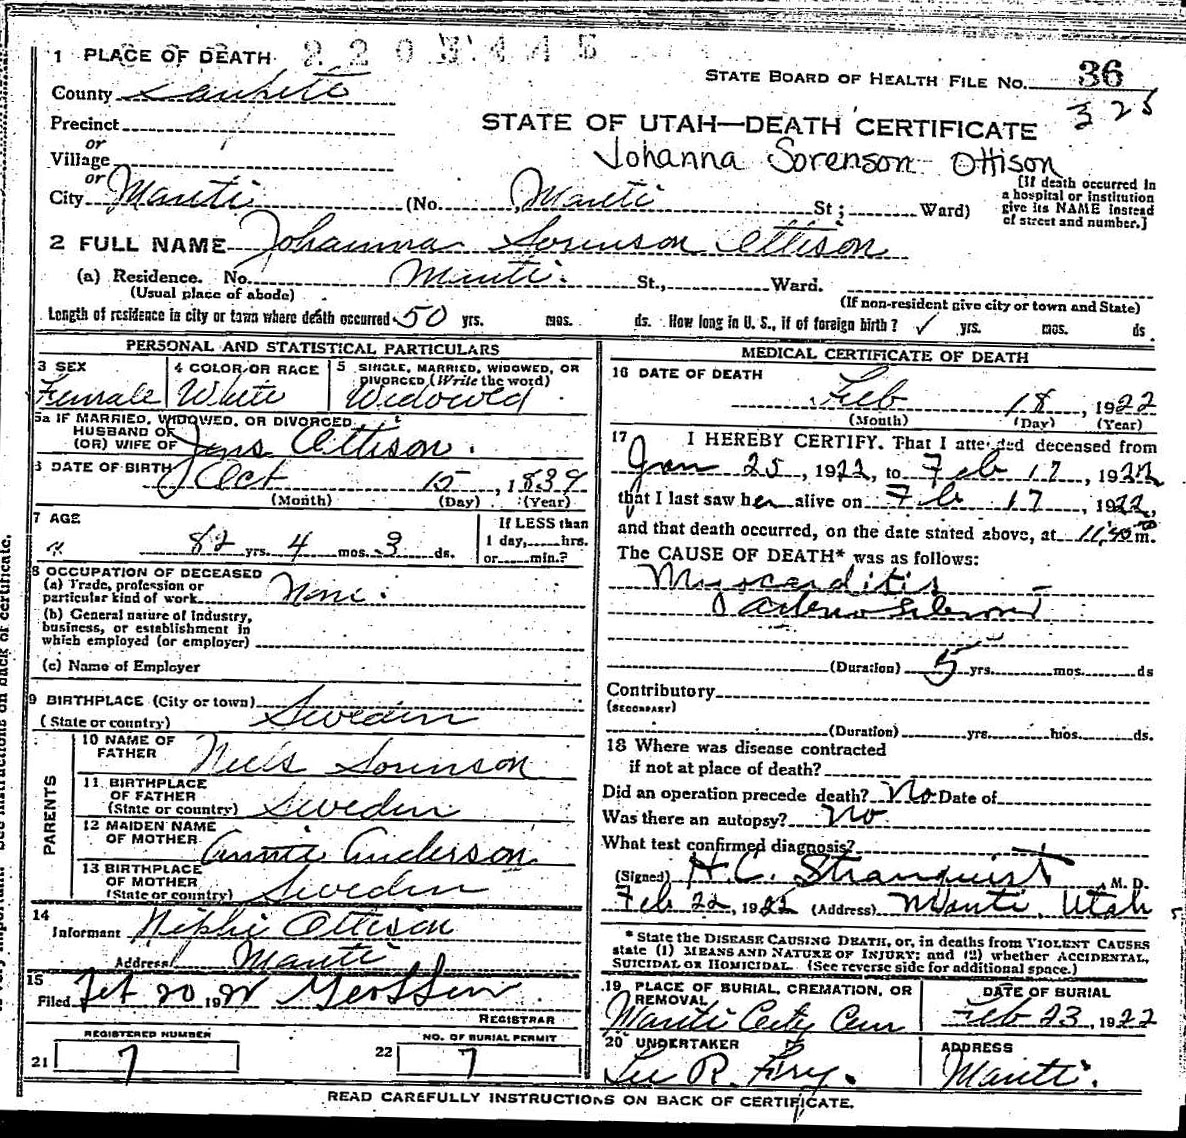 1 PLACE OF DEATH 2203445
STATE BOARD OF HEALTH FILE No. 36
County Sanpete
325
Precinct
STATE OF UTAH—DEATH CERTIFICATE
or
Village
Johanna Sorenson Ottison
or
City Manti (No. Manti St; Ward)
[If death occurred in
a hospital or institution
give its NAME instead
of street and number.]
2 FULL NAME Johanna Sorenson Ottison
(a) Residence. No. Manti. St., Ward.
(Usual place of abode) (If non-resident give city or town and State)
Length of residence in city or town where death occurred 50 yrs. mos. ds. How long in U. S., if of foreign birth? ✓ yrs. mos. ds.
PERSONAL AND STATISTICAL PARTICULARS
3 SEX
Female
4 COLOR OR RACE
White
5 SINGLE, MARRIED, WIDOWED, OR
DIVORCED (Write the word)
Widowed
5a IF MARRIED, WIDOWED, OR DIVORCED
HUSBAND OF
(OR) WIFE OF Jens Ottison.
6 DATE OF BIRTH Oct 15, 1839
(Month) (Day) (Year)
7 AGE
82 yrs. 4 mos. 3 ds.
If LESS than
1 day, hrs.
or min.?
8 OCCUPATION OF DECEASED
(a) Trade, profession or
particular kind of work None.
(b) General nature of industry,
business, or establishment in
which employed (or employer)
(c) Name of Employer
9 BIRTHPLACE (City or town)
(State or country) Sweden
PARENTS
10 NAME OF
FATHER Niels Sorenson
11 BIRTHPLACE
OF FATHER
(State or country) Sweden
12 MAIDEN NAME
OF MOTHER Annie Anderson
13 BIRTHPLACE
OF MOTHER
(State or country) Sweden
14
Informant Ottison
Address Manti
15
Filed Feb 20 1922
REGISTRAR
REGISTERED NUMBER
21 7
NO. OF BURIAL PERMIT
22 7
MEDICAL CERTIFICATE OF DEATH
16 DATE OF DEATH
Feb 18, 1922
(Month) (Day) (Year)
17
I HEREBY CERTIFY, That I attended deceased from
Jan 25, 1922, to Feb 17, 1922
that I last saw her alive on Feb 17, 1922,
and that death occurred, on the date stated above, at 11:40 m.
The CAUSE OF DEATH* was as follows:
Myocarditis
(Duration) 5 yrs. mos. ds
Contributory
(SECONDARY)
(Duration) yrs. mos. ds.
18 Where was disease contracted
if not at place of death?
Did an operation precede death? No Date of
Was there an autopsy? No
What test confirmed diagnosis?
(Signed) H.C. Stranquist, M. D.
Feb 22, 1922 (Address) Manti, Utah
* State the DISEASE CAUSING DEATH, or, in deaths from VIOLENT CAUSES
state (1) MEANS AND NATURE OF INJURY; and (2) whether ACCIDENTAL,
SUICIDAL or HOMICIDAL. (See reverse side for additional space.)
19 PLACE OF BURIAL, CREMATION, OR
REMOVAL
Manti City Cem
DATE OF BURIAL
Feb 23, 1922
20 UNDERTAKER
Lee R.
ADDRESS
Manti.
READ CAREFULLY INSTRUCTIONS ON BACK OF CERTIFICATE.